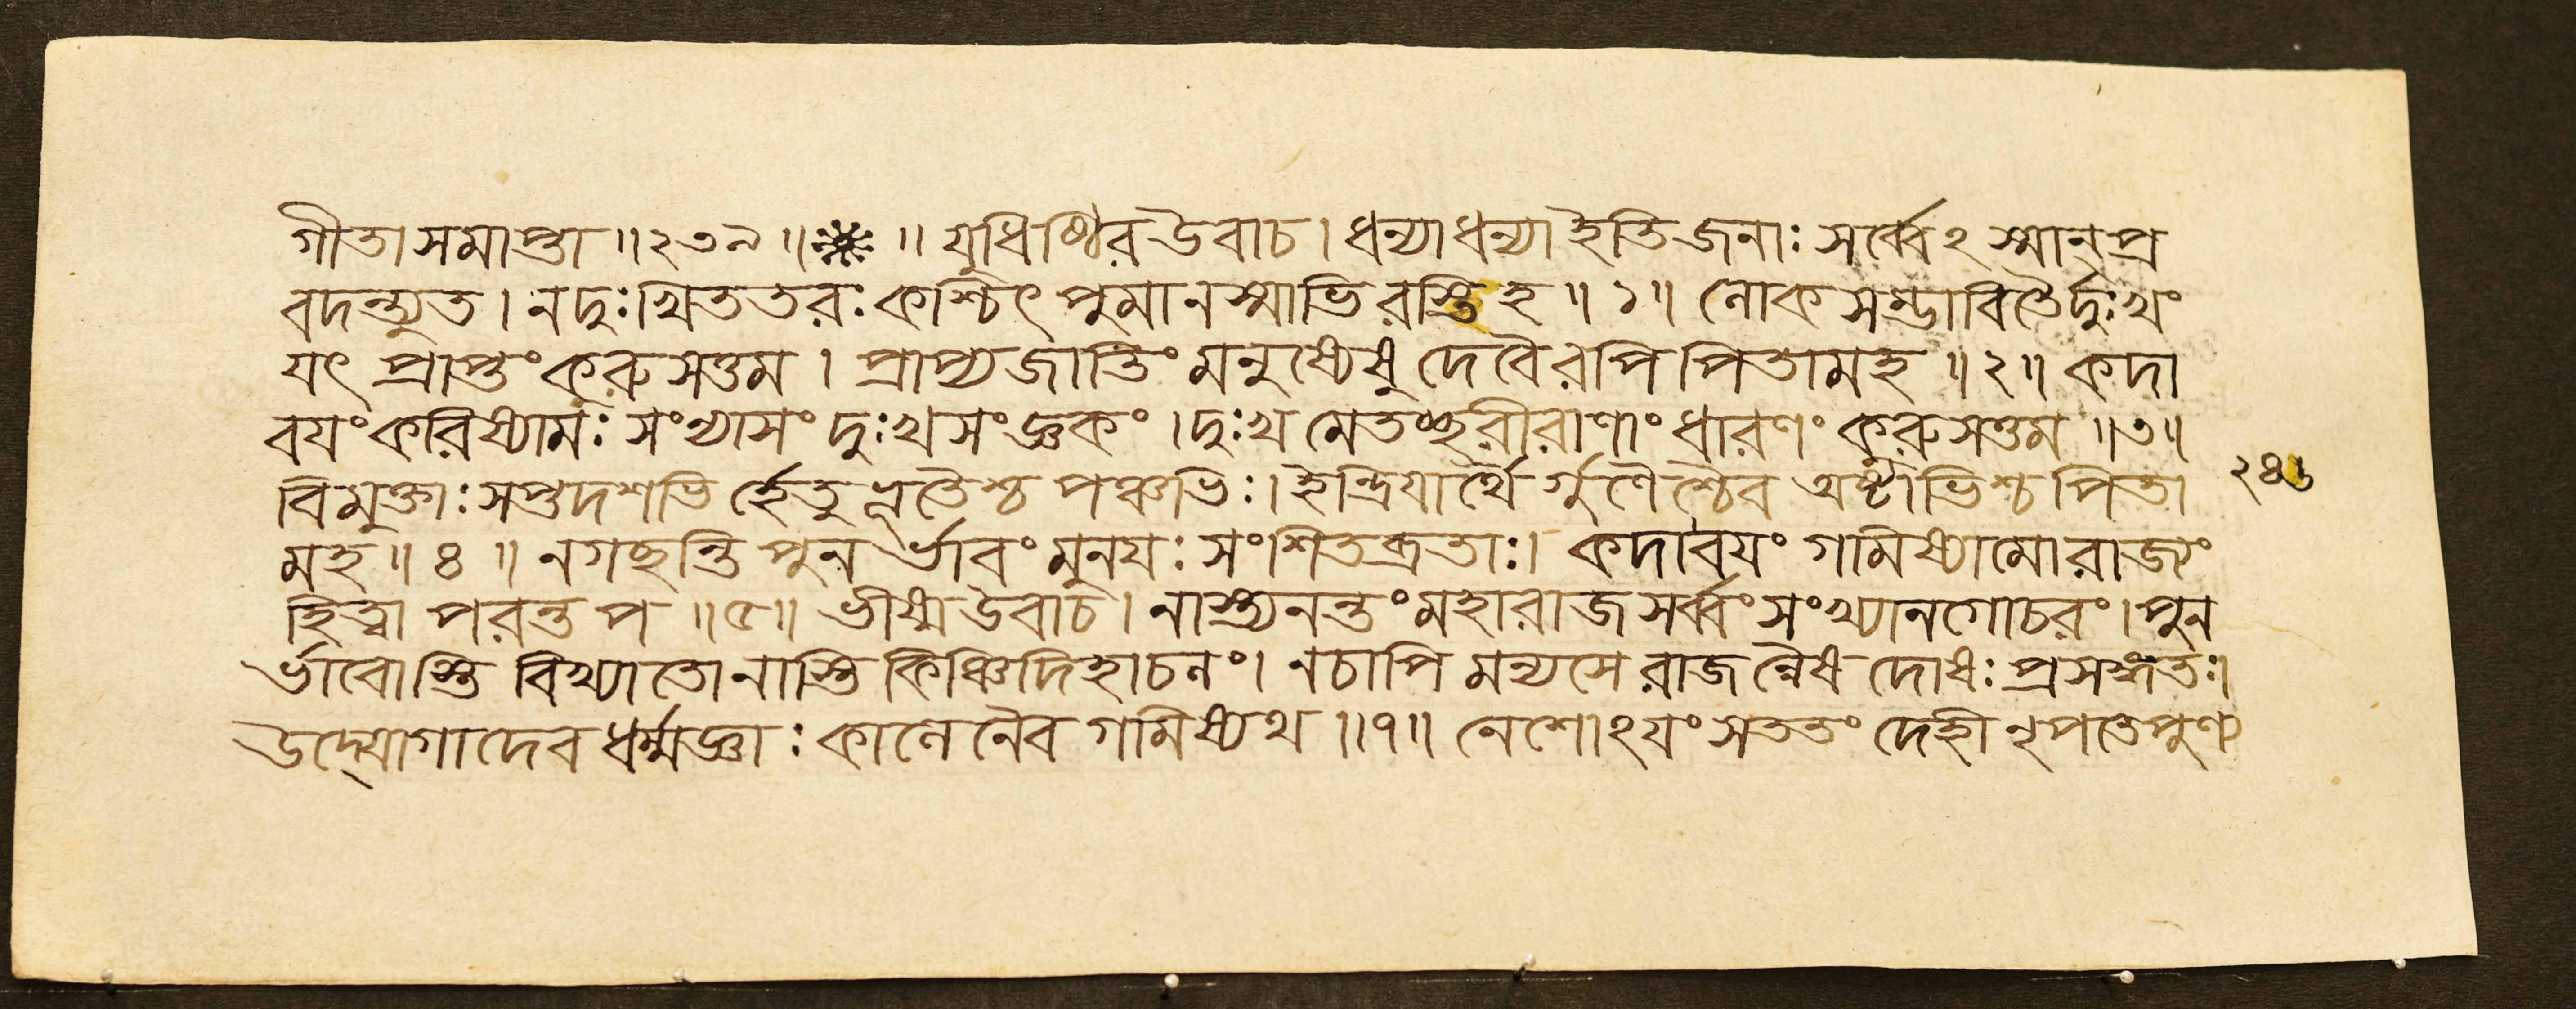 গীতাসমাপ্তা॥২৩৯॥ ॥যুধিষ্ঠিরউবাচ।ধন্যাধন্যাইতিজনাঃসর্ব্বেঽস্মান্প্র
বদন্ত্যুত।নদুঃখিততরঃকশ্চিৎপুমানস্মাভিরস্ত্রিহ॥১॥লোকসম্ভাবিতৈর্দুঃখং
যৎপ্রাপ্তংকুরুসত্তম।প্রাপ্যজাতিংমনুষ্যেষুদেবৈরপিপিতামহ॥২॥কদা
বয়ংকরিষ্যামঃসংন্যাসংদুঃখসংজ্ঞকং।দুঃখমেতচ্ছরীরাণাংধারণংকুরুসত্তম॥৩॥
বিমুক্তাঃসপ্তদশভির্হেতুভূতৈশ্চপঞ্চভিঃ।ইন্দ্রিয়ার্থৈর্গুণৈশ্চৈবঅষ্টাভিশ্চপিতা
২৪৬
মহ॥৪॥নগচ্ছন্তিপুনর্ভাবংমুনয়ঃসংশিতব্রতাঃ।কদাবয়ংগমিষ্যামোরাজ্যং
হিত্বাপরন্তপ॥৫॥ভীষ্মউবাচ।নাস্ত্যনন্তংমহারাজসর্ব্বংসংখ্যানগোচরং।পুন
র্ভাবোস্তিবিখ্যাতোনাস্তিকিঞ্চিদিহাচলং।নচাপিমন্যসেরাজন্নৈষদোষঃপ্রসঙ্গতঃ।
উদ্যোগাদেবধর্ম্মজ্ঞাঃকালেনৈবগমিষ্যথ॥৭॥নেশোঽয়ংসততংদেহীনৃপতেপুণ্য